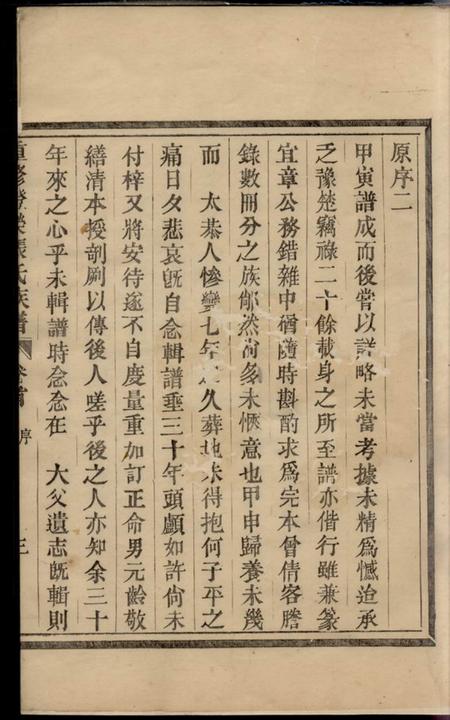 原序二
甲寅譜成而後嘗以詳略未當考據未精爲憾迨承
乏豫楚竊祿二十餘載身之所至譜亦偕行雖兼篆
宜章公務錯雜中猶隨時斟酌求爲完本曾倩客謄
錄數冊分之族 然尙多未愜意也甲申歸養未幾
而 太恭人慘變七年 久葬地未得抱何子平之
痛日久悲哀旣自念輯譜垂三十年頭顱如許尙未
付梓又將安待遂不自度量重加訂正命男元齡敬
繕清本授剞劂以傳後人嗟乎後之人亦知余三十
年來之心乎未輯譜時念念在 大父遺志旣輯則
重修 張氏族譜 卷首 序 三